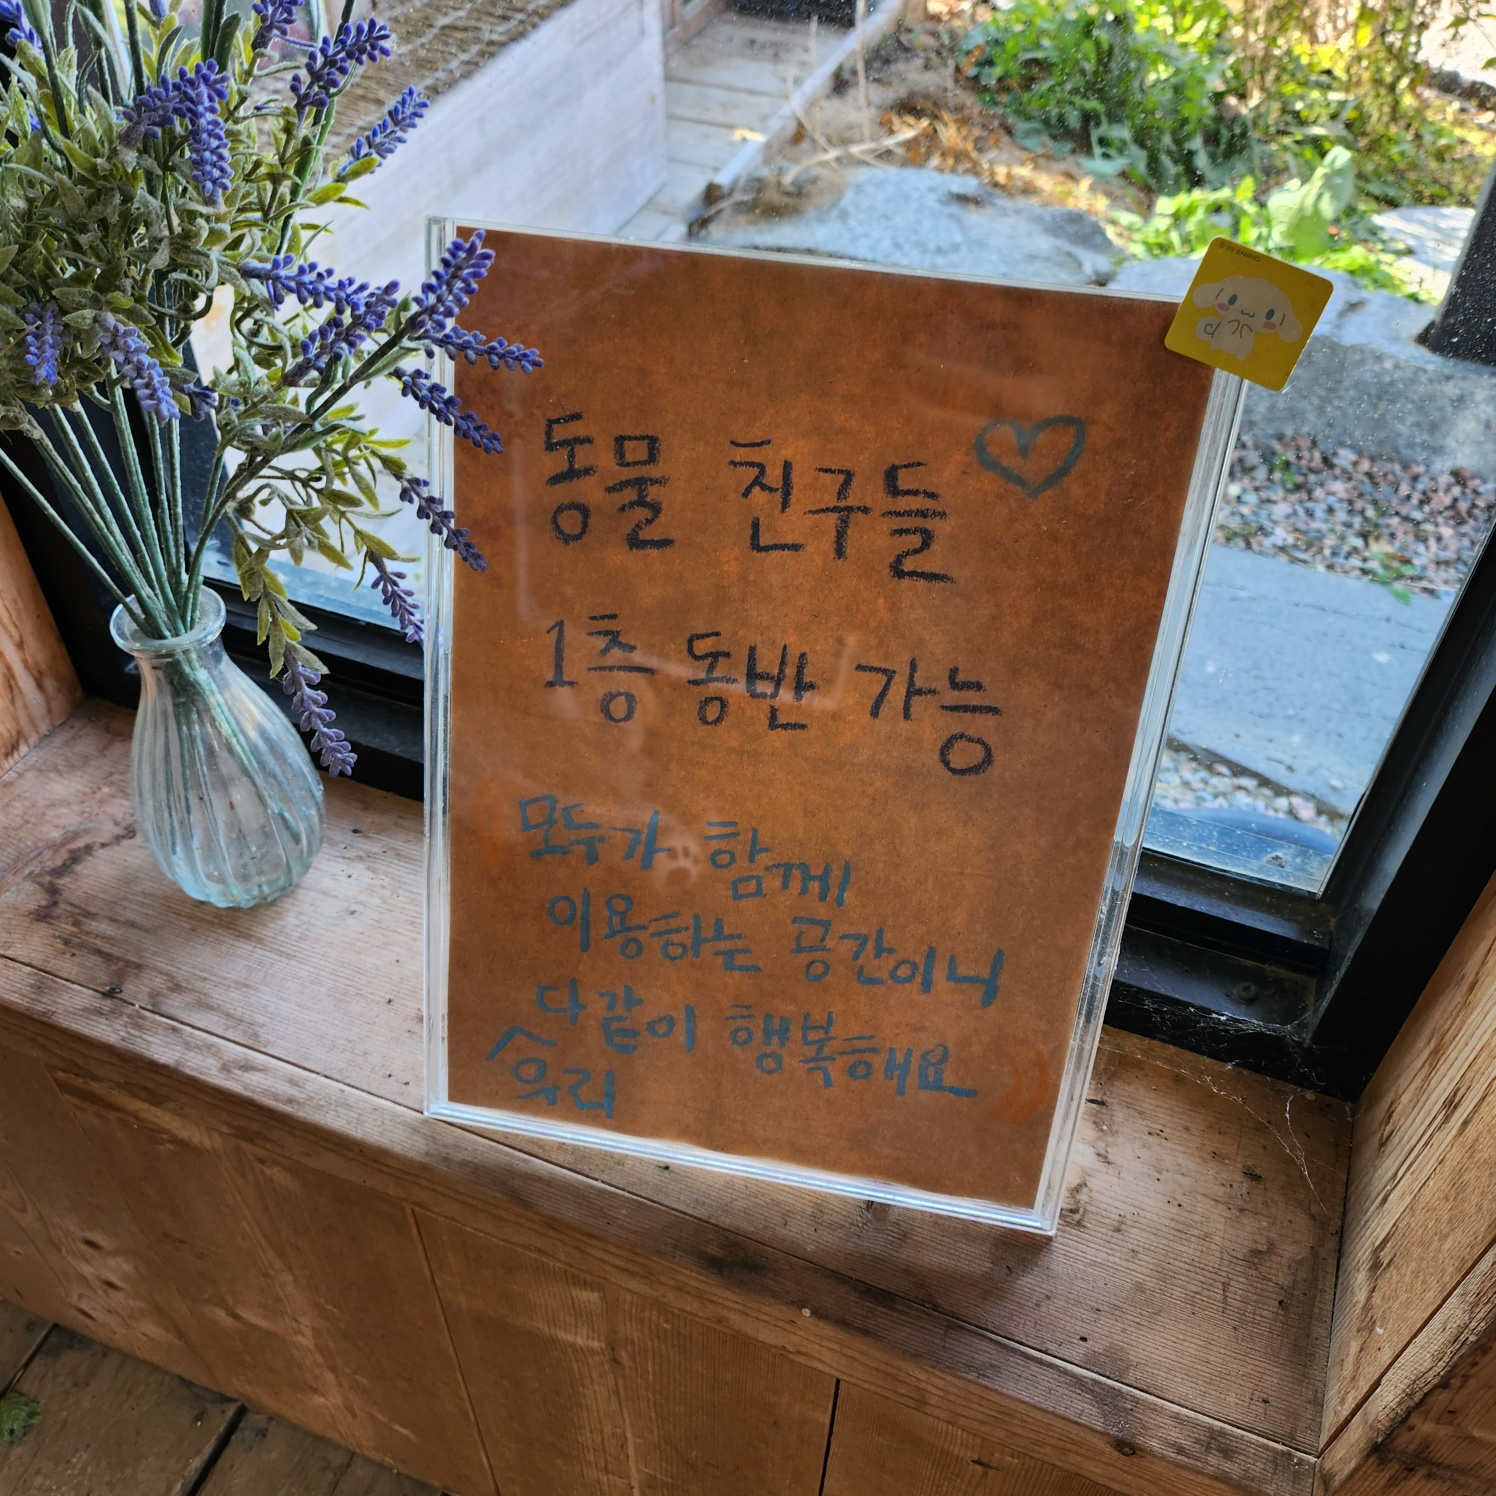 동물 친구들
1층 동반 가능
모두가 함께
이용하는 공간이니
다같이 행복해요
우리